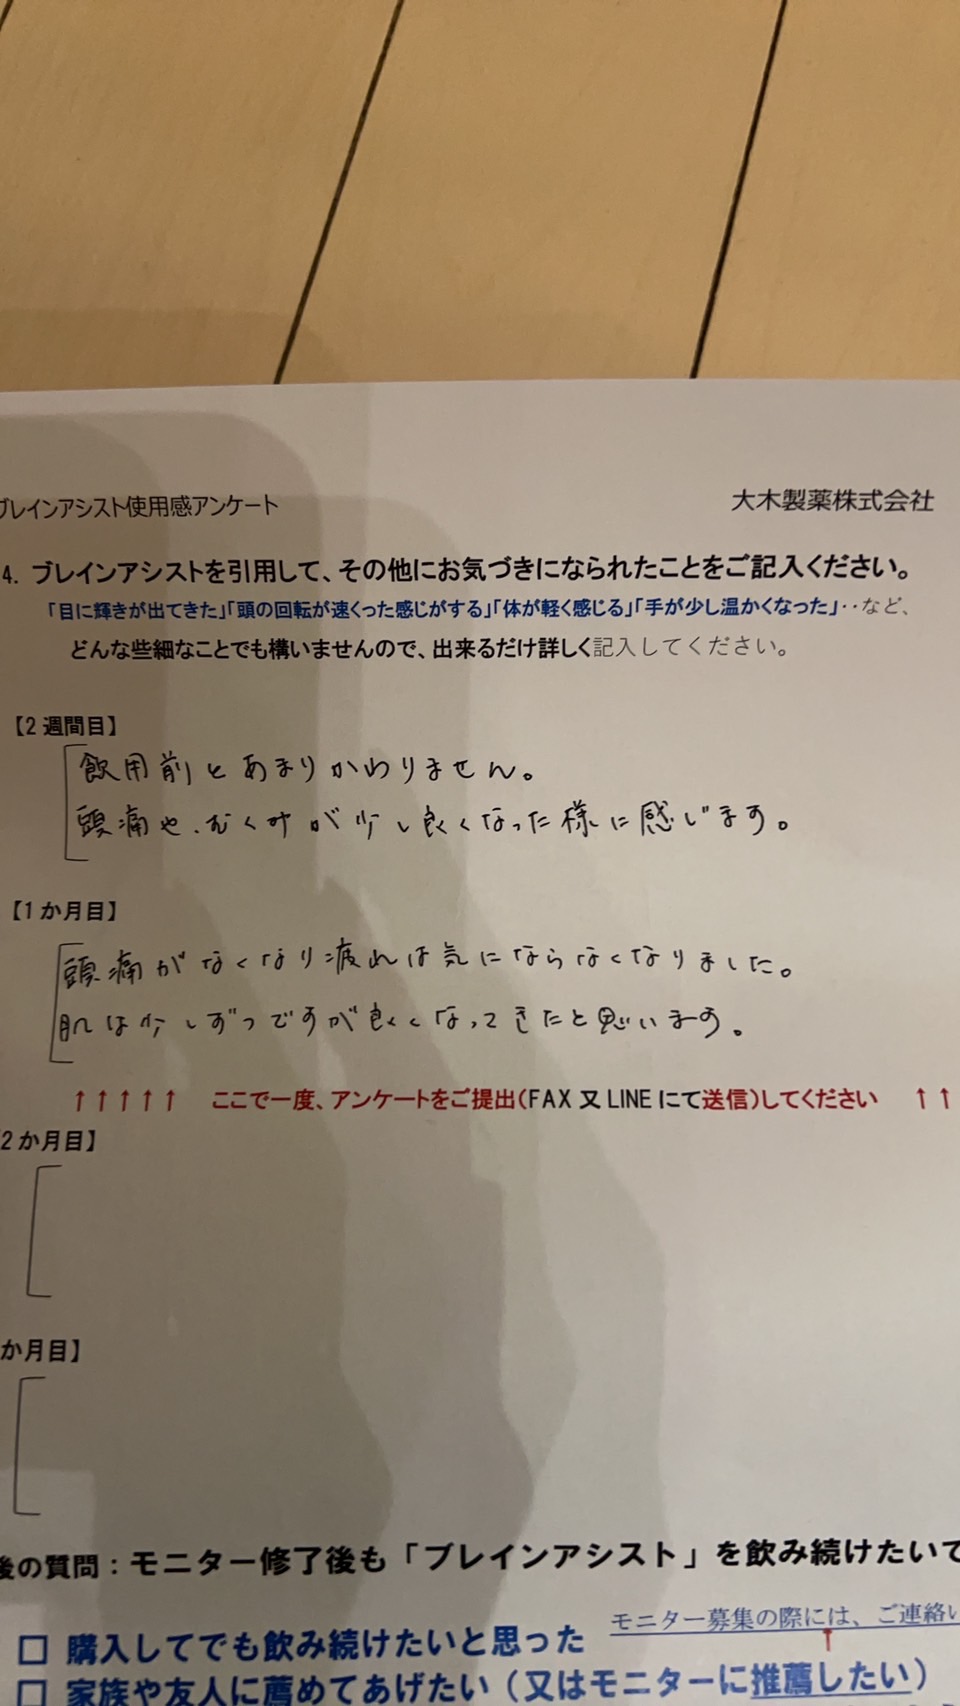 ブレインアシスト使用感アンケート
大木製薬株式会社
4. ブレインアシストを引用して、その他にお気づきになられたことをご記入ください。
「目に輝きが出てきた」「頭の回転が速くった感じがする」「体が軽く感じる」「手が少し温かくなった」‥など、
どんな些細なことでも構いませんので、出来るだけ詳しく記入してください。
【2 週間目】
飲用前とあまりかわりません。
頭痛や、むくみが少し良くなった様に感じます。
【1 か月目】
頭痛がなくなり疲れは気にならなくなりました。
肌は少しずつですが良くなってきたと思います。
↑↑↑↑↑ ここで一度、アンケートをご提出(FAX 又 LINE にて送信)してください ↑↑
2 か月目】
か月目】
後の質問：モニター修了後も「ブレインアシスト」を飲み続けたいで
モニター募集の際には、ご連絡い
□ 購入してでも飲み続けたいと思った
↑
□ 家族や友人に薦めてあげたい（又はモニターに推薦したい）